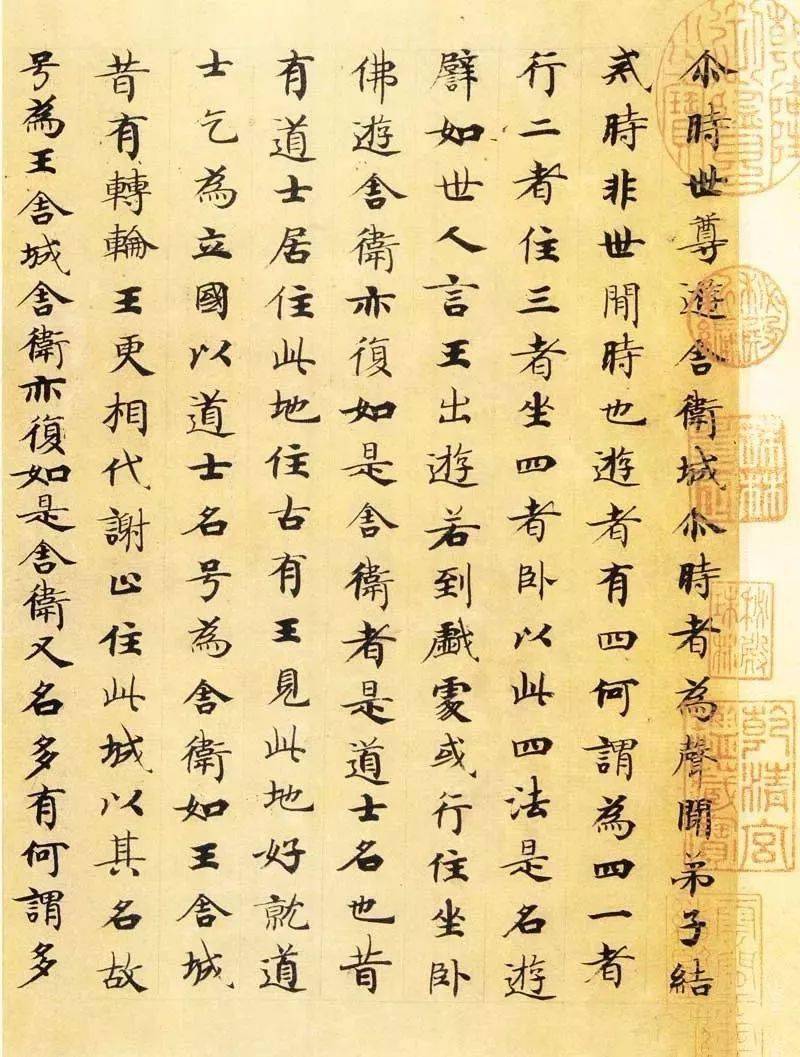 尒時世尊遊舍衛城尒時者為聲聞弟子結
戒時非世間時也遊者有四何謂為四一者
行二者住三者坐四者卧以此四法是名遊
譬如世人言王出遊若到戲處或行住坐卧
佛遊舍衛亦復如是舍衛者是道士名也昔
有道士居住此地住古有王見此地好就道
士乞為立國以道士名号為舍衛如王舍城
昔有轉輪王更相代謝止住此城以其名故
号為王舍城舍衛亦復如是舍衛又名多有何謂多
秘殿
新編
秘殿
珠林
乾清宮
鑒藏寶